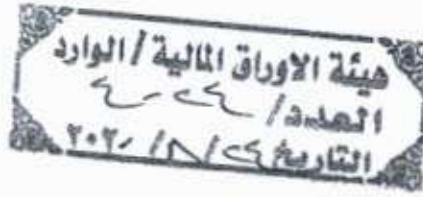 هيئة الاوراق المالية / الوارد
العدد /
التاريخ ٢٤ / ٨ / ٢٠٢٠